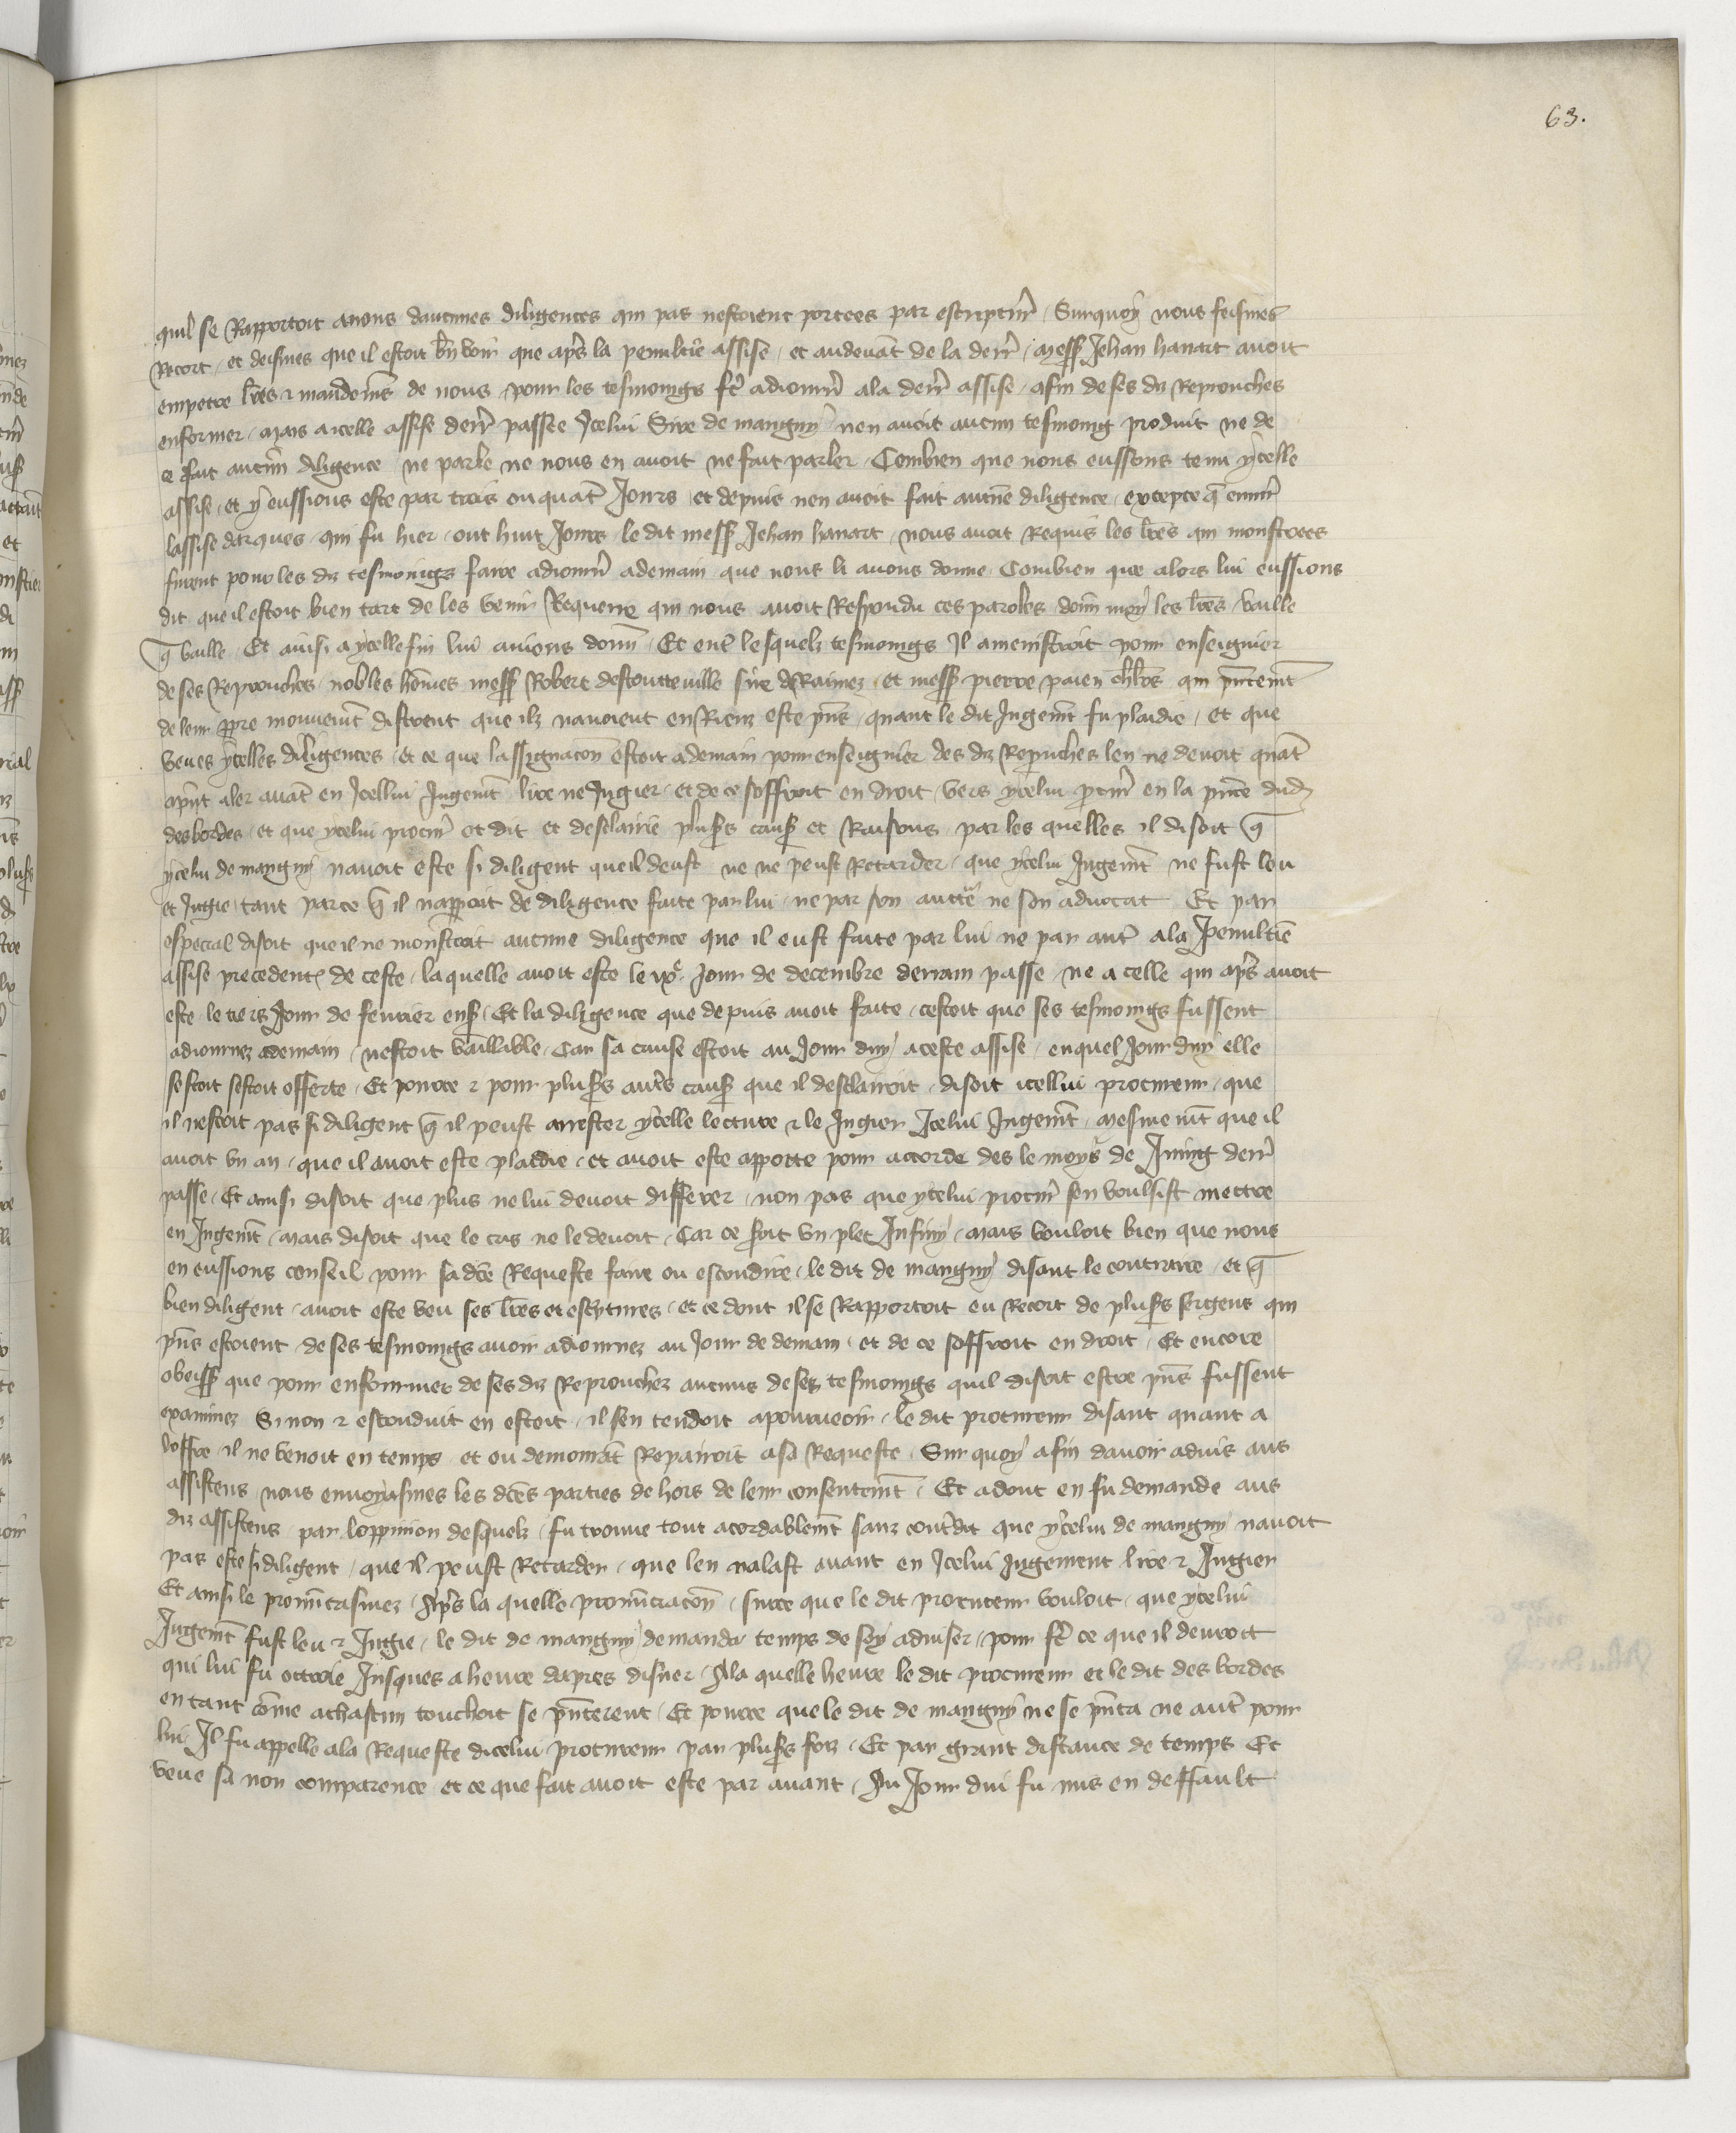 63.
quil se Rapportoit anous daucunes diligences qui pas nestoient portees par escriptur̃ / Surquoy nous feismes
Recort / et deismes que il estoit bñ voir que apr̃s la penultiẽ assise / et audeuãt de la derr̃ / mess̃ Jehan hanart auoit
empetre lr̃es ⁊ mandemẽs de nous pour les tesmoings fr̃e adiourn̄ ala derr̃ assise / afin de ses dis Reprouches
enformer / mais aicelle assise derr̃ passee Icelui Sire de mangny nen auoit aucun tesmoing produit ne de
ce fait aucun̄ diligence ne parle ne nous en auoit ne fait parler / Combien que nous eussons tenu ycelle
assise / et y eussions este par trois ou quatr̃ Jours et depuis nen auoit fait aucun̄e diligence / excepte q̃ enuir̃
lassise darques / qui fu hier / out huit Jours / le dit mess̃ Jehan hanart / nous auoit Requis les lr̃es qui monstrees
furent pour les dis tesmoings faire adiourn̄ ademain que nous li auons donne / Combien que alors lui eussions
dit que il estoit bien tart de les venir Requerre qui nous auoit Respondu ces paroles / donn̄ moy les lr̃es / vaille
q̃ vaille / Et ainsi a ycelle fin lui auions donn̄ / Et entr̃ lesquelz tesmoings Il amenistroit pour enseignier
de ses Reprouches / nobles hom̄es mess̃ Robert destouteuille sire de Raimez / et mess̃ pierre paien ch̃lrs qui pñtemẽt
de leur ppre mouuemẽt distrent que ilz nauoient en Riens este pñs / quant le dit Jugemẽt fu plaidie / et que
veues ycelles diligences / et ce que lassignacoñ estoit ademain pour enseignier des dis Reprouches len ne deuoit quãt
apñt aler auãt en Icellui Jugemẽt lire ne Jugier / et de ce soffroit en droit / vers ycelui procur̃ en la pñce dud̃
desbordes / et que ycelui procur̃ ot dit et desclairie plus̃s caus̃ et Raisons par les quelles il disoit q̃
ycelui de mangny nauoit este si diligent que il deust ne ne peust Retarder / que ycelui Jugemẽt ne fust leu
et Jugie / tant parce q̃ il napparoit de diligence faite par lui ne par son ne son aduocat Et par
especial disoit que il ne monstroit aucune diligence que il eust faite par lui ne par autr̃ ala penultiẽ
assise precedent̃ de ceste / laquelle auoit este le ixe. Jour de decembre derrain passe / ne a celle qui apr̃s auoit
este le tiers Jour de feurier ens̃ / Et la diligence que depuis auoit faite / cestoit que ses tesmoings fussent
adiournez ademain / nestoit vaillible / Car sa cause estoit au Jour duy / aceste assise / enquel Jour duy elle
sestoit sestoit offerte / Et pource ⁊ pour plus̃s autr̃s caus̃ que il desclairoit / disoit icellui procureur / que
il nestoit pas si diligent q̃ il peust arrester ycelle lecture ⁊ le Jugier Icelui Jugemẽt / mesmemẽt que il
auoit vn an / que il auoit este plaidie / et auoit este apporte pour accorde des le moys de Juing derr̃
passe / Et ainsi disoit que plus ne lui deuoit differer / non pas que ycelui procur̃ sen voulsist mettre
en Jugemẽt / mais disoit que le cas ne le deuoit / Car ce soit vn plet Infiny / mais vouloit bien que nous
en eussions conseil / pour sa dc̃e Requeste faire ou escondire / le dit de mangny disant le contraire / et q̃
bien diligent / auoit este veu ses lr̃es et escriptures / et ce dont il se Rapportoit eu Recort de plus̃s sergens qui
pñs estoient / de ses tesmoings auoir adiournez au Jour de demain / et de ce soffroit en droit / Et encore
obeiss̃ que pour enformer de ses dis Reprouchez aucuns de ses tesmoings quil disoit estre pñs fussent
examinez Sinon ⁊ esconduit en estoit / il sen tendoit apourueoir / le dit procureur disant quant a
loffre il ne venoit en temps et ou demourãt Repairoit asa Requeste / Sur quoy afin dauoir aduis aus
assistens nous enuoyasmes les dc̃es parties dehors de leur consentemẽt / Et adont en fu demande aus
dis assistens par loppinion desquelz / fu trouue tout acordablemẽt sanz contr̃dit que ycelui de mangny nauoit
pas este si diligent / que il peust Retarder / que len nalast auant en Icelui Jugement lire ⁊ Jugier
Et ainsi le pronunciasmez / Apr̃s la quelle pronunciacoñ / surce que le dit procureur vouloit / que ycelui
Jugemẽt fust leu ⁊ Jugie / le dit de mangny demanda temps de soy aduiser / pour fr̃e ce que il deuroit
qui lui fu ottroie Jusques a heure dapres disner / Ala quelle heure le dit procureur et le dit des bordes
en tant com̄e achascun touchoit se pñterent / Et pource que le dit de mangny ne se pñta ne autr̃ pour
lui / Il fu appelle ala Requeste dicelui procureur par plus̃s fois / Et par grant distance de temps Et
veue sa non comparence et ce que fait auoit este par auant / Au Jour dui fu mis en deffault